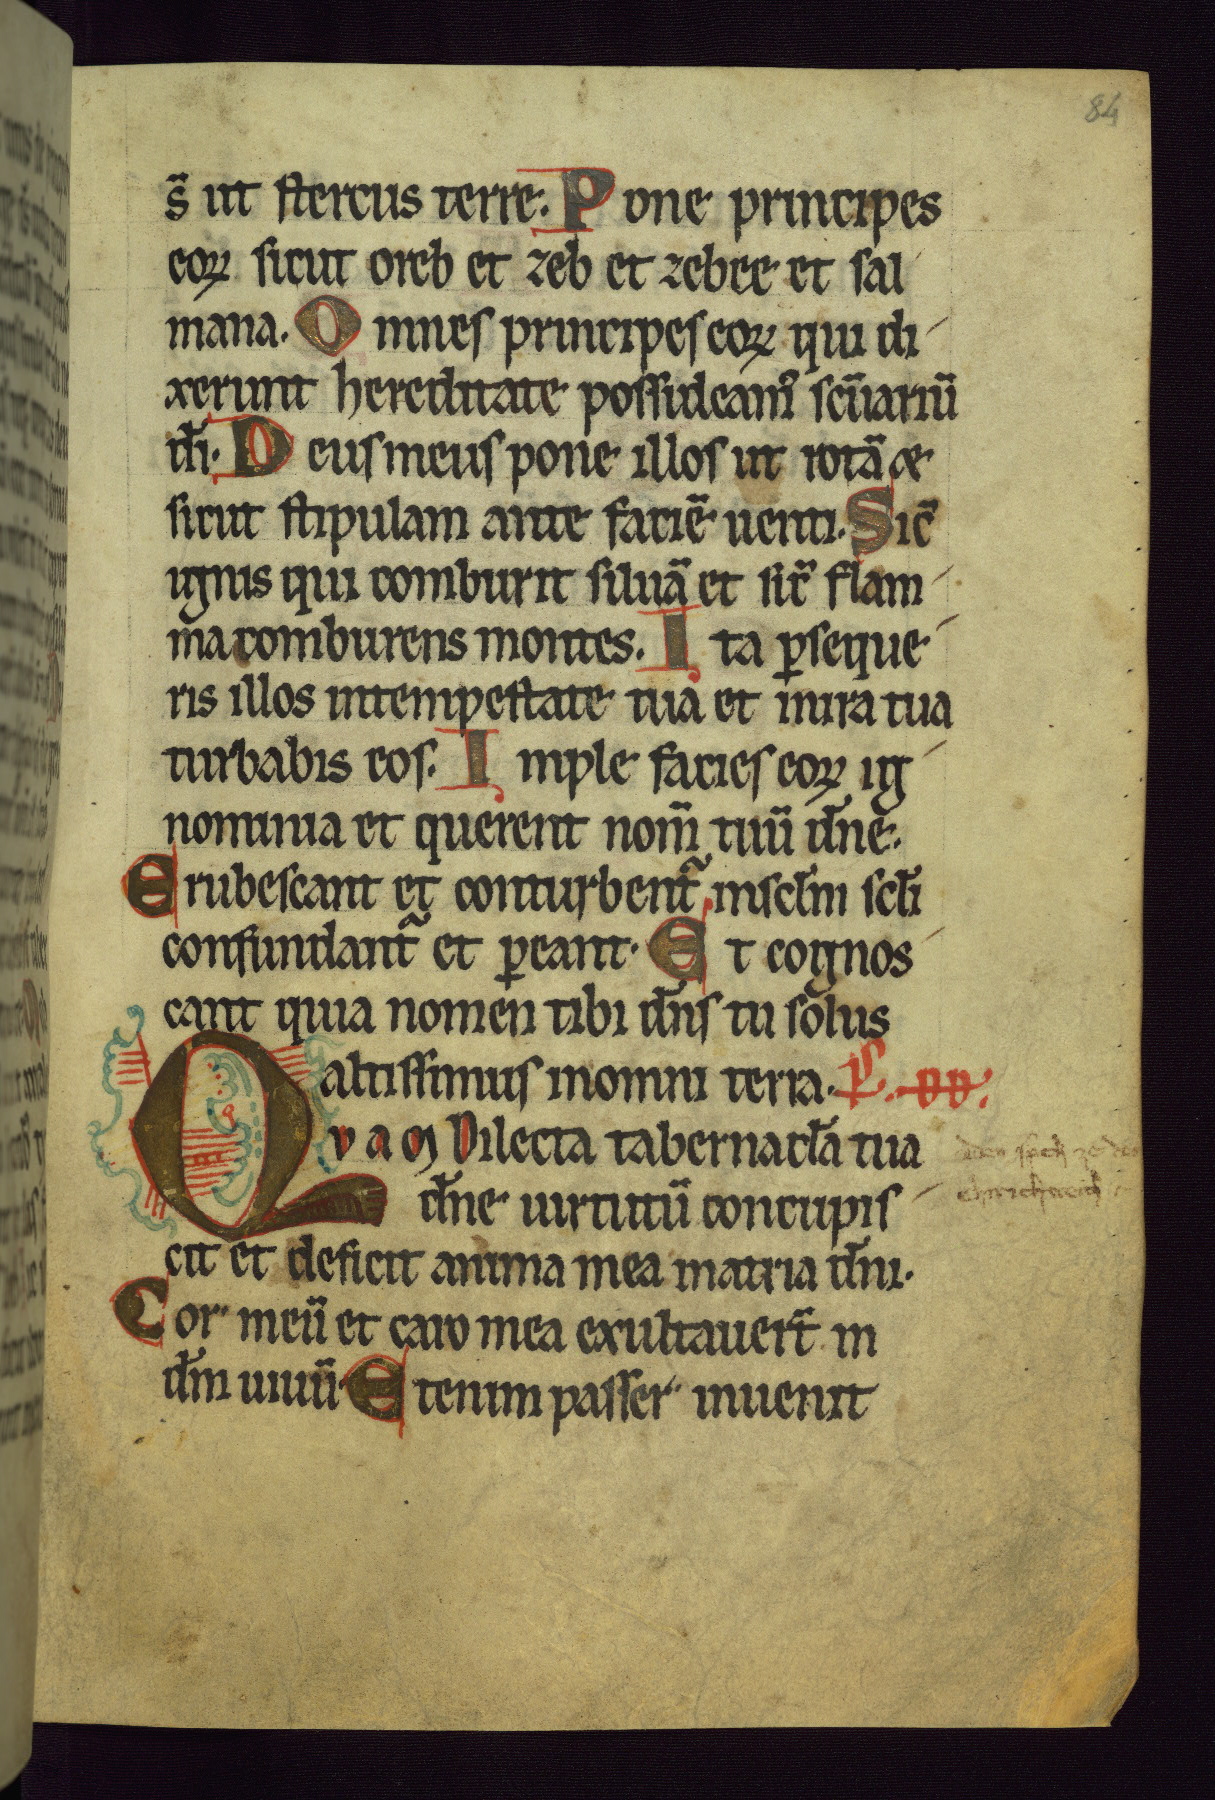 84
s̄ ut stercus terre. Pone principes
eoꝝ sicut oreb et zeb et zebee et sal
mana. Omnes principes eoꝝ qui di
xerunt hereditate possideam᾿ sc̄uariū
dī. Deus meus pone illos ut rotā &
sicut stipulam ante faciē uenti. Sic̄
ignis qui comburit siluā et sic̄ flam
ma comburens montes. Ita ꝑseque
ris illos intempestate tua et inira tua
turbabis eos. Imple facies eoꝝ ig
nominia et querent nom̄ tuū dn̄e.
Erubescant et conturbent᷑ insclm̄ sclī
confundant᷑ et ꝑeant. Et cognos
cant quia nomen tibi dn̄s tu solus
altissimus inomni terra. P̄.
QVAM Dilecta tabernacl̄a tua
dn̄e uirtutū concupis
cit et deficit anima mea inatria dn̄i.
Cor meū et caro mea exultauert̄ in
dm̄ uiuū. Etenim passer inuenit